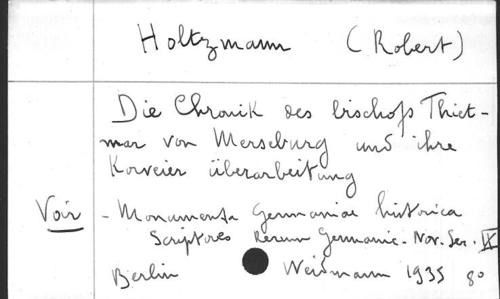 Holtzmann (Robert)
Die Chronik des bischofs Thiet-
mar von Merseburg und ihre
Korveier überarbeitung
Voir - Monumenta Germaniae historica
Scriptores Rerum Germanic. Nov. Ser. IX
Berlin Weidmann 1935 8o